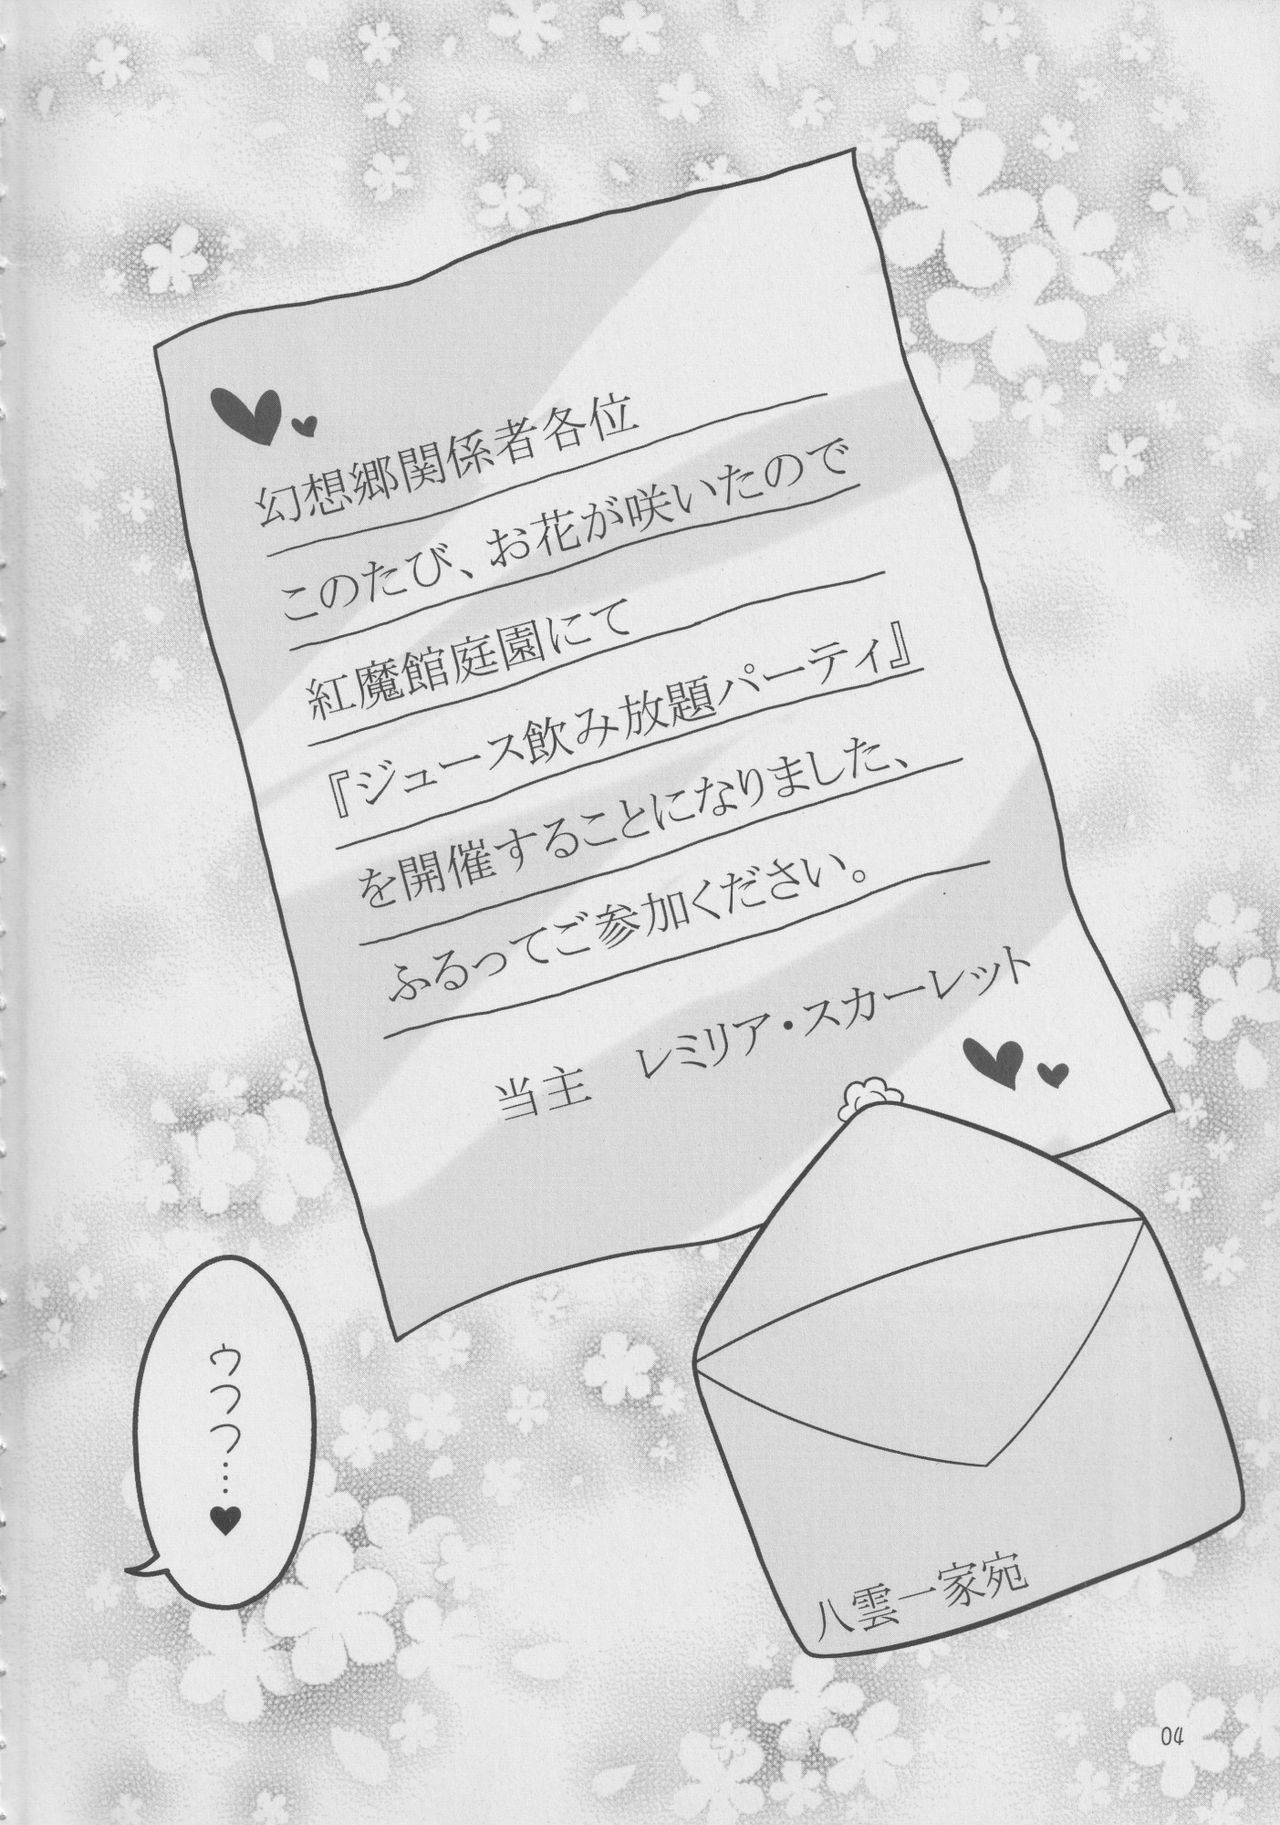 幻想郷関係者各位
このたび、お花が咲いたので
紅魔館庭園にて
『ジュース飲み放題パーティ』
を開催することになりました、
ふるってご参加ください。
当主　レミリア・スカーレット
八雲一家宛
ウフフ…♥
04